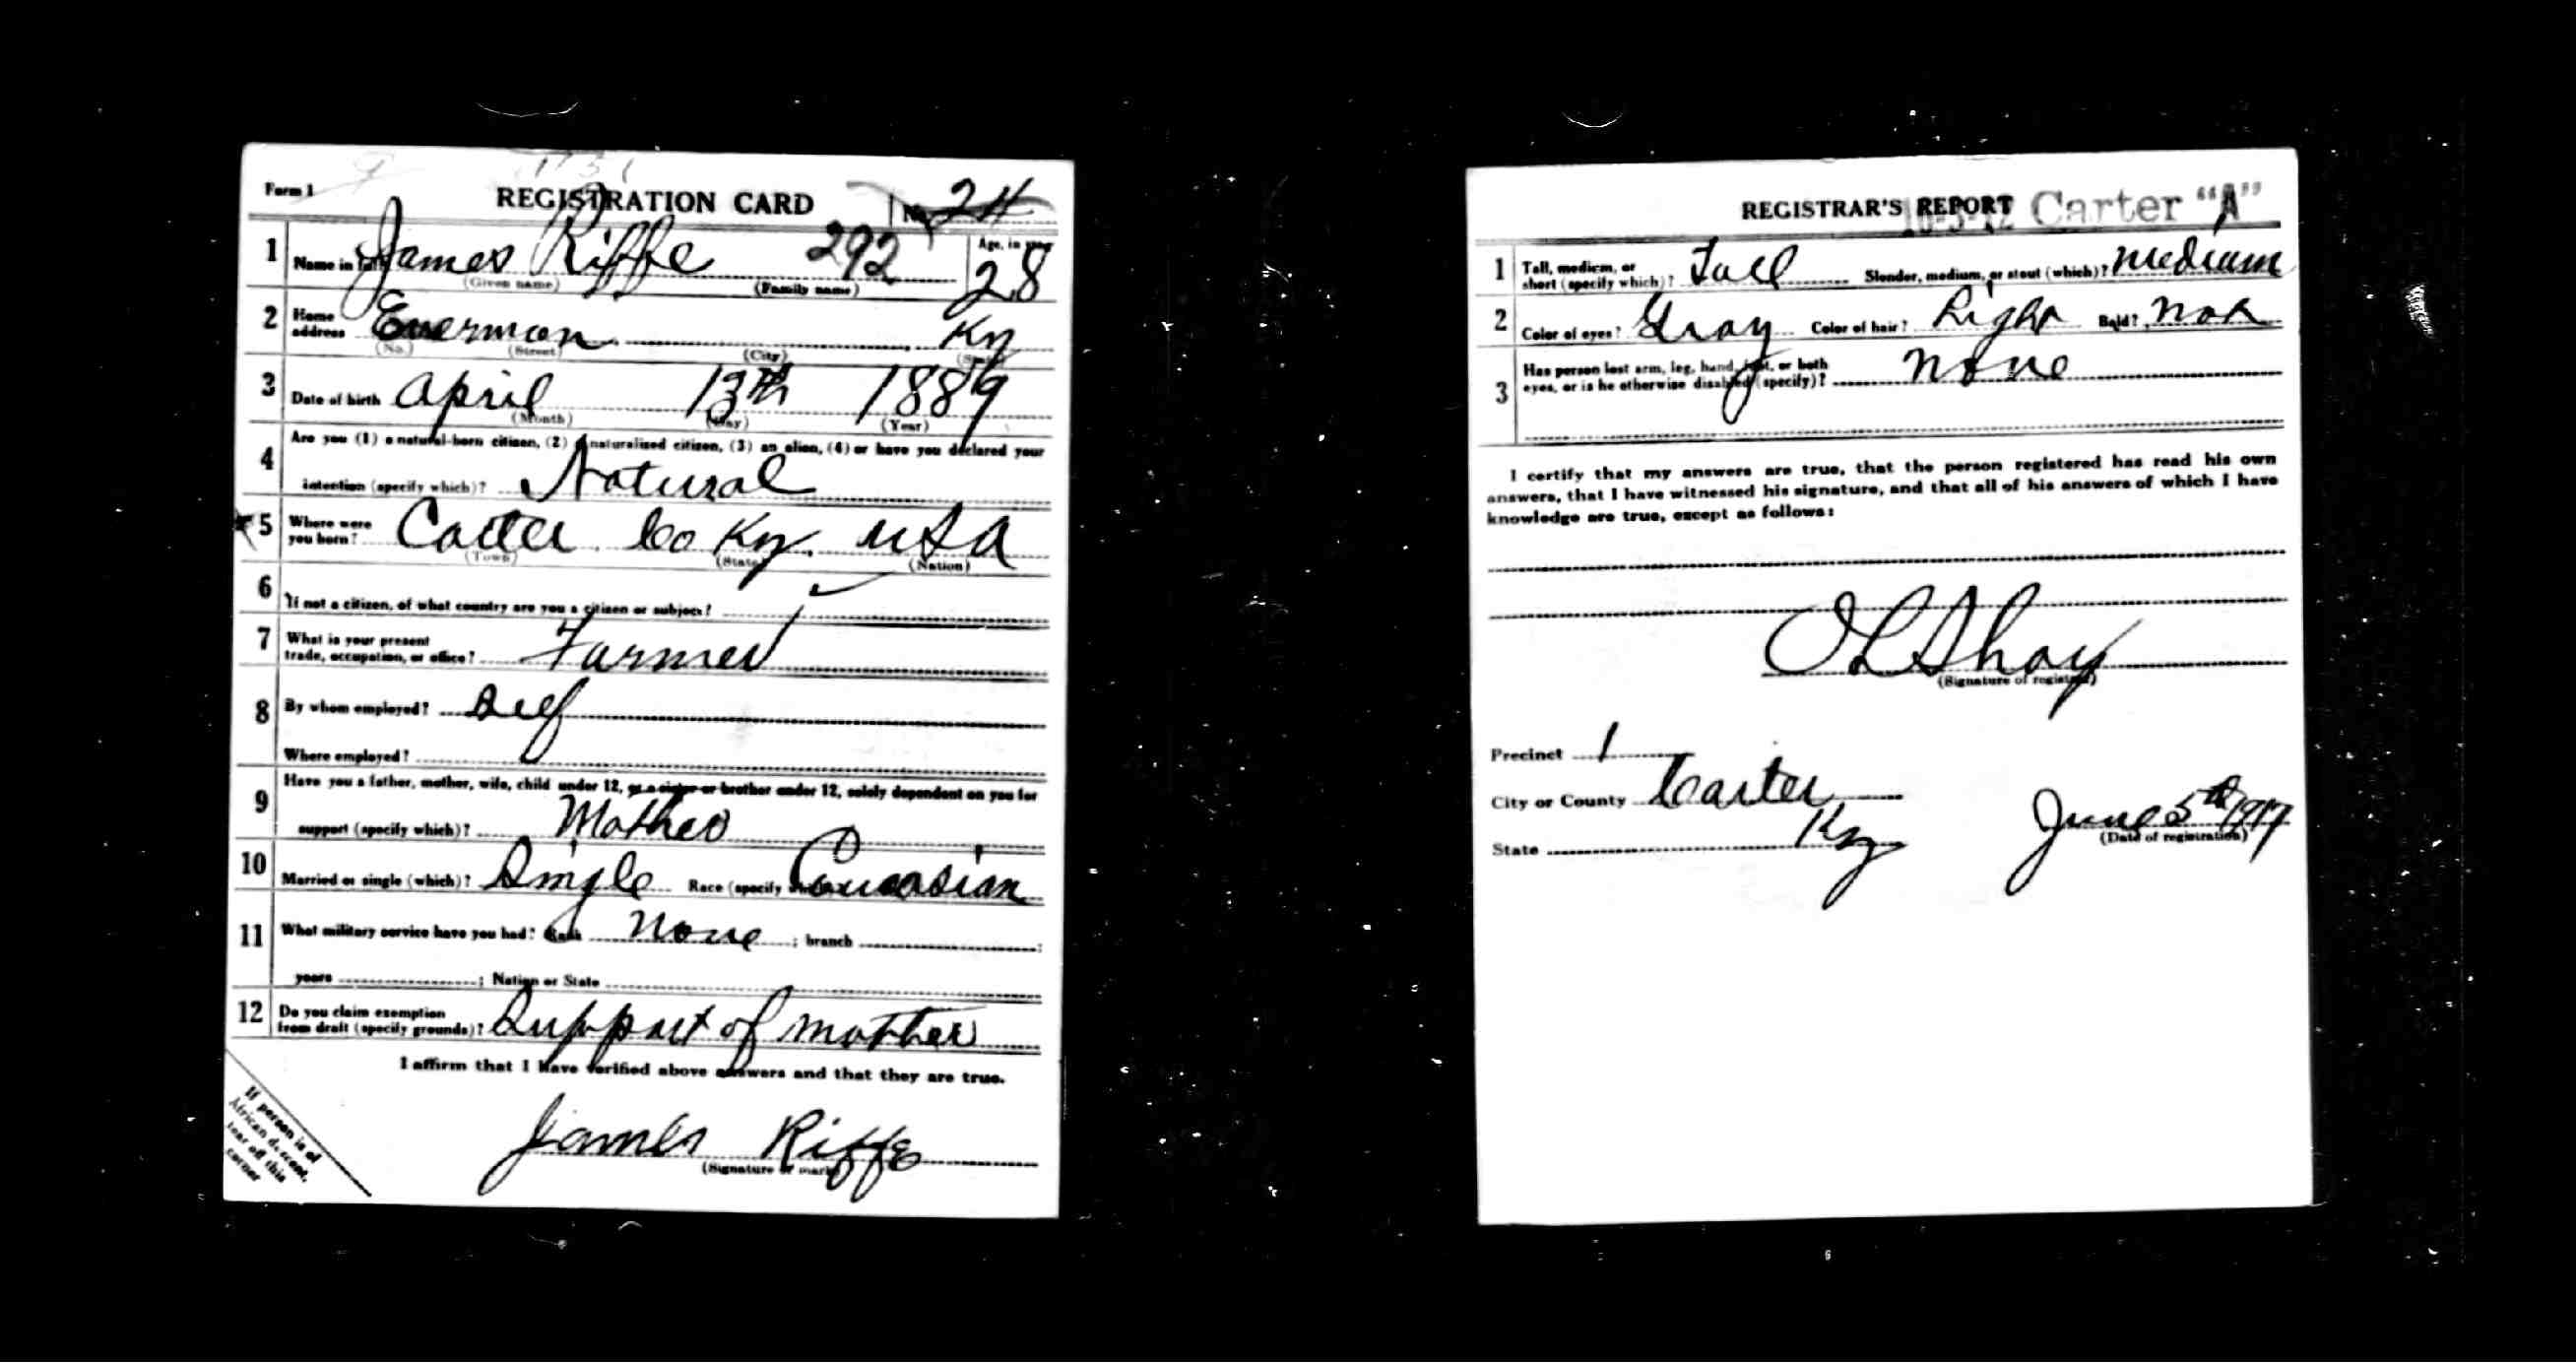 Form 1
REGISTRATION CARD No. 24
1 Name in full James Riffe 292 Age, in yrs. 28
(Given name) (Family name)
2 Home address Everman Ky
(No.) (Street) (City) (State)
3 Date of birth April 13th 1889
(Month) (Day) (Year)
4 Are you (1) a natural-born citizen, (2) a naturalized citizen, (3) an alien, (4) or have you declared your
intention (specify which)? Natural
5 Where were you born? Carter Co Ky. USA
(Town) (State) (Nation)
6 If not a citizen, of what country are you a citizen or subject?
7 What is your present
trade, occupation, or office? Farmer
8 By whom employed? Self
Where employed?
9 Have you a father, mother, wife, child under 12, or a sister or brother under 12, solely dependent on you for
support (specify which)? Mother
10 Married or single (which)? Single Race (specify which)? Caucasian
11 What military service have you had? Rank None ; branch ;
years ; Nation or State
12 Do you claim exemption
from draft (specify grounds)? Support of mother
I affirm that I have verified above answers and that they are true.
James Riffe
(Signature or mark)
If person is of
African descent,
tear off this
corner
REGISTRAR'S REPORT Carter "A"
1 Tall, medium, or
short (specify which)? Tall Slender, medium, or stout (which)? Medium
2 Color of eyes? Gray Color of hair? Light Bald? Not
3 Has person lost arm, leg, hand, foot, or both
eyes, or is he otherwise disabled (specify)? None
I certify that my answers are true, that the person registered has read his own
answers, that I have witnessed his signature, and that all of his answers of which I have
knowledge are true, except as follows:
O L Shay
(Signature of registrar)
Precinct 1
City or County Carter
State Ky
June 5th 1917
(Date of registration)